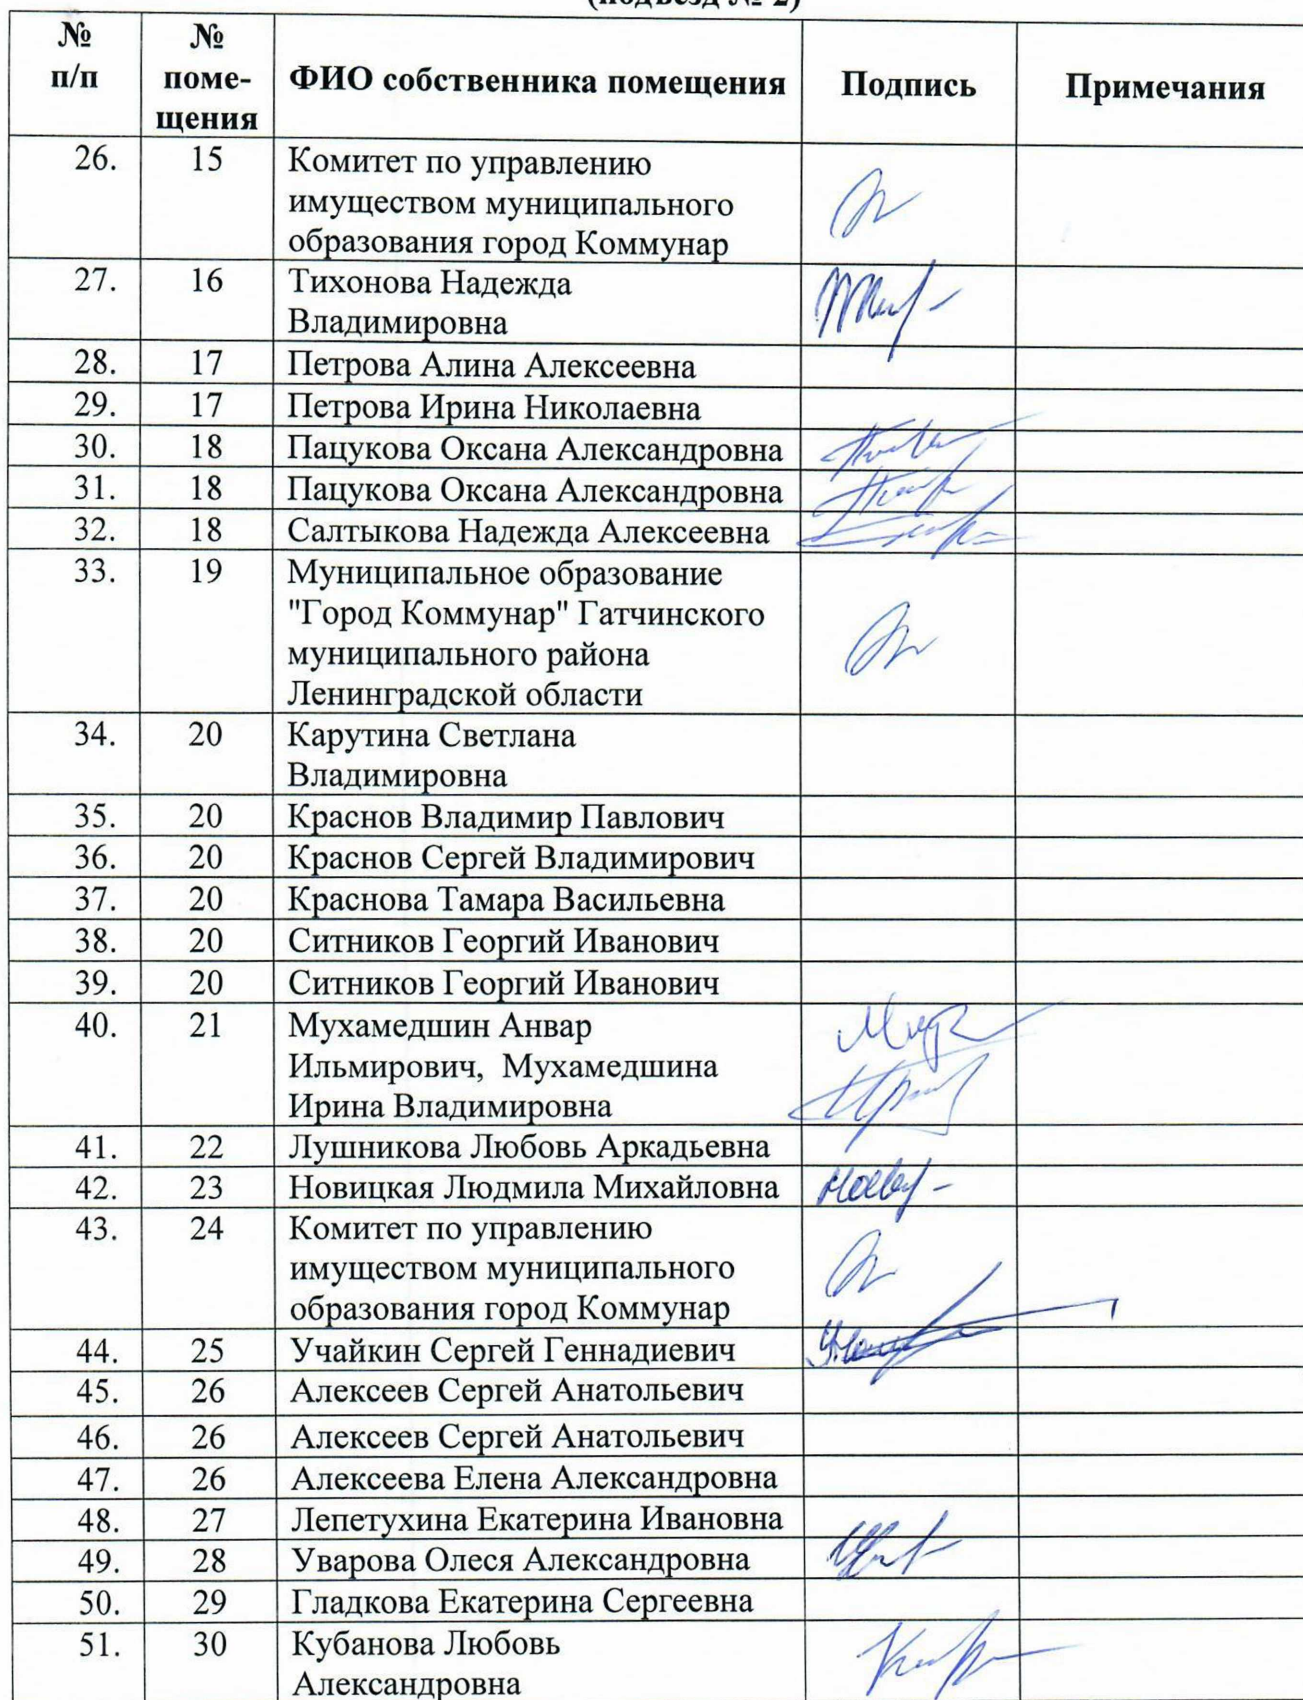 (подъезд № 2)
№ п/п № поме-щения ФИО собственника помещения Подпись Примечания
26. 15 Комитет по управлению
имуществом муниципального
образования город Коммунар
27. 16 Тихонова Надежда
Владимировна
28. 17 Петрова Алина Алексеевна
29. 17 Петрова Ирина Николаевна
30. 18 Пацукова Оксана Александровна
31. 18 Пацукова Оксана Александровна
32. 18 Салтыкова Надежда Алексеевна
33. 19 Муниципальное образование
"Город Коммунар" Гатчинского
муниципального района
Ленинградской области
34. 20 Карутина Светлана
Владимировна
35. 20 Краснов Владимир Павлович
36. 20 Краснов Сергей Владимирович
37. 20 Краснова Тамара Васильевна
38. 20 Ситников Георгий Иванович
39. 20 Ситников Георгий Иванович
40. 21 Мухамедшин Анвар
Ильмирович, Мухамедшина
Ирина Владимировна
41. 22 Лушникова Любовь Аркадьевна
42. 23 Новицкая Людмила Михайловна
43. 24 Комитет по управлению
имуществом муниципального
образования город Коммунар
44. 25 Учайкин Сергей Геннадиевич
45. 26 Алексеев Сергей Анатольевич
46. 26 Алексеев Сергей Анатольевич
47. 26 Алексеева Елена Александровна
48. 27 Лепетухина Екатерина Ивановна
49. 28 Уварова Олеся Александровна
50. 29 Гладкова Екатерина Сергеевна
51. 30 Кубанова Любовь
Александровна